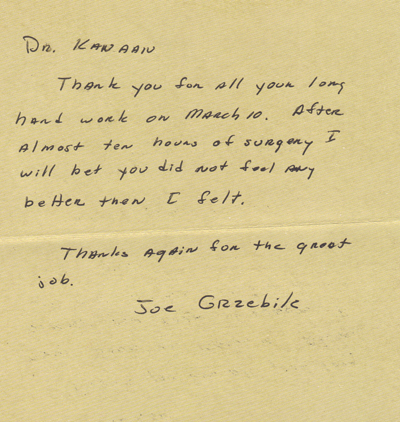 Dr. Kanaan
Thank you for all your long
hard work on March 10. After
almost ten hours of surgery I
will bet you did not feel any
better then I felt.
Thanks again for the great
job.
Joe Grzebik